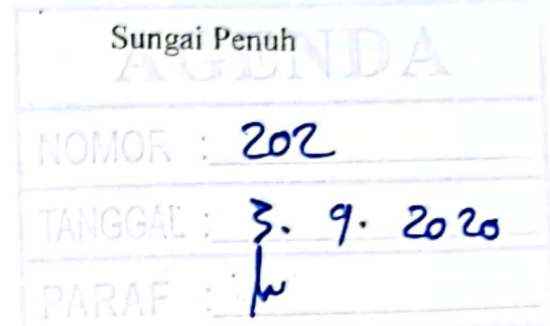 Sungai Penuh
AGENDA
NOMOR : 202
TANGGAL : 3. 9. 2020
PARAF :